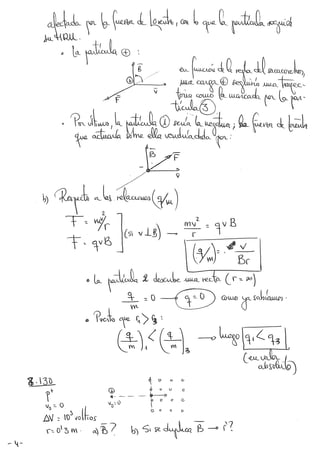 afectada por la fuerza de Lorentz, con lo que la partícula seguirá
su MRU.
• La partícula ⊕ :
B
en función de la regla del sacacorchos,
una carga ⊕ seguiría una trayec-
toria como la marcada por la par-
tícula ③.
F v
• Por último, la partícula ① sería la negativa; la fuerza de Lorentz
que actuaría sobre ella vendría dada por:
B F
v
b) Respecto a las relaciones (q/m)
F = mv²/r
F = qvB
(si v ⊥ B) → mv²/r = qvB
(q/m) = v/Br
• la partícula 2 describe una recta (r = ∞)
q/m = 0 → q = 0 como ya sabíamos.
• Puesto que r₁ > r₃ :
(q/m)₁ < (q/m)₃ → luego q₁ < q₃
(en valor
absoluto)
8.130
p⁺
v₀ = 0
⊕
v₀ = 0
ΔV = 10³ voltios
r = 0'3 m. a) B? b) Si se duplica B → r?
-4-